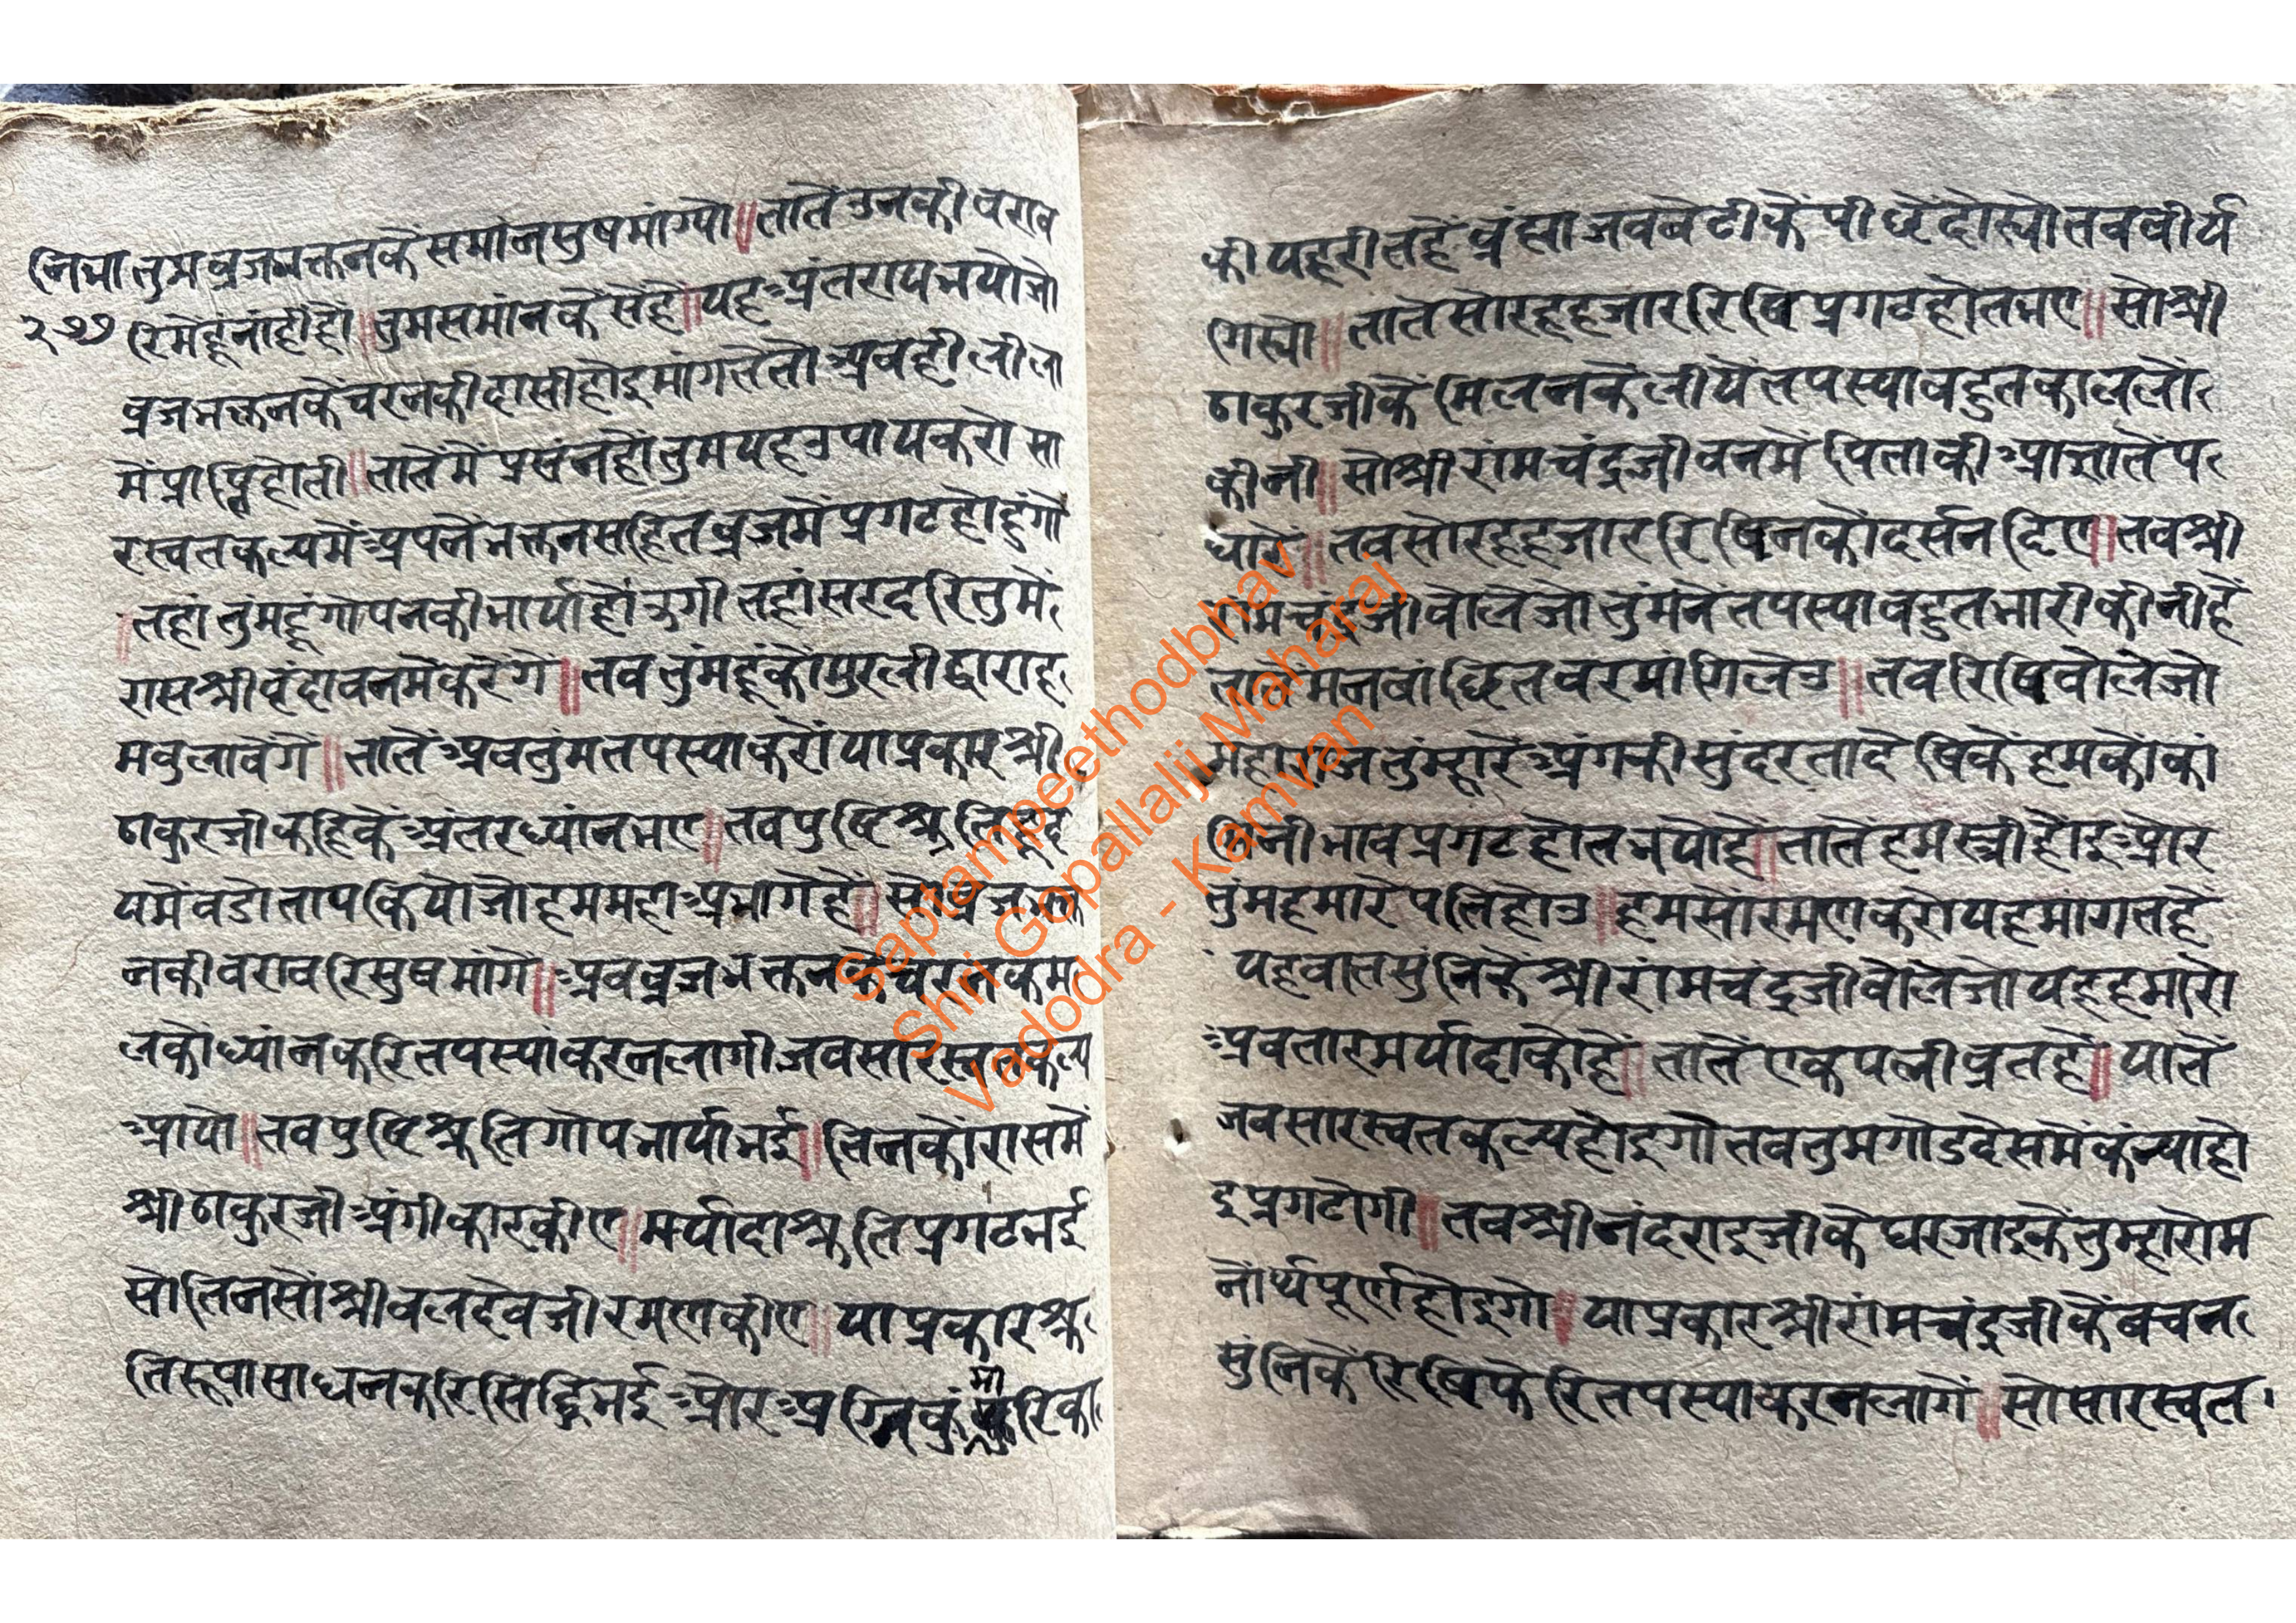 निभा तुम व्रजभक्तनकें समांन सुषमांग्यो॥तातें उनकी वराव
२७७
रिमेंहूंनांहींहों॥तुमसमांनकैसेंहै॥यहअंतरायभयोजो
व्रजभक्तनकेंचरनकीदासीहोइमांगतेतोअवहीलीला
मेंप्राप्तिहोती॥तातेंमें प्रसंनहोंतुमयहउपायकरो सा
रस्वतकल्पमेंअपनेंभक्तनसहितव्रजमेंप्रगटहोहुंगो
॥तहांतुंमहूंगोपनकीभार्याहोउगी तहांसरदरितुमें
रासश्रीवृंदावनमेंकरेंगे॥तवतुंमहूंकोंमुरलीद्वाराह
मवुलावेंगे॥तातेंअवतुंमतपस्याकरोयाप्रकारश्री
ठाकुरजीकहिकेंअंतरध्यांनभए॥तवपुष्टिश्रुतिहृद
यमेंवडोतापकियोजोहममहाअभागेहें॥सोव्रजभक्त
नकीवरावरिसुषमांगें॥अवव्रजभक्तनकेंचरनकम
लकोंध्यांनकरितपस्यांकरनलागीजवसारस्वतकल्प
आयो॥तवपुष्टिश्रुतिगोपभार्याभई॥तिनकोंरासमें
श्रीठाकुरजीअंगीकारकीए॥मर्यादाश्रुतिप्रगटभई
सोतिनसोंश्रीवलदेवजीरमणकीए॥याप्रकारश्रु
तिरूपासाधनकरिसिद्धिभई और अग्निकुंमारिका
कीयहरीतहेंव्रंह्माजवबेटीकेंपीछेंदोस्योतववीर्य
गिस्यो॥तातेंसोरहहजाररिषिप्रगटहोतभए॥सोश्री
ठाकुरजीकेंमिलनकेलीयेंतपस्यावहुतकाललों
कीनी॥सोश्रीरांमचंद्रजीवनमेंपिताकीआज्ञातेंप
धारें॥तवसोरहहजाररिषिनकोंदर्सनदिए॥तवश्री
रांमचंद्रजीवोलेजोतुंमनेंतपस्यावहुतभारीकीनीहें
तातेंमनवांछितवरमांगिलेउ॥तवरिषिवोलेजो
महाराजतुंम्हारेंअंगकीसुंदरतादेषिकेंहमकोंकां
मिनीभावप्रगटहोतभयोहें॥तातेंहमस्त्रीहोइओर
तुंमहमारेपतिहोउ॥हमसोंरमणकरोयहमांगतहें
यहवातसुंनिकेंश्रीरांमचंद्रजीवोलेजोयहहमारो
अवतारमर्यादाकोहै॥तातेंएकपत्नीव्रतहें॥यातें
जवसारस्वतकल्पहोइगोतवतुमगोडदेसमेंकंन्याहो
इप्रगटोगी॥तवश्रीनंदराइजीकेघरजाइकेंतुम्हारोम
नोर्थपूर्णहोइगो॥याप्रकारश्रीरांमचंद्रजीकेंवचन
सुंनिकेंरिषिफेरितपस्याकरनलागें॥सोसारस्वत
Saptampeethodbhav
Shri Gopallalji Maharaj
Vadodra - Kamvan